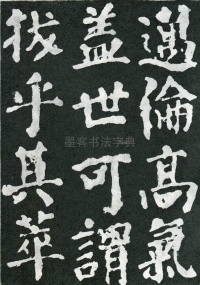 邁倫高氣
蓋世可謂
拔乎其萃
墨客书法字典